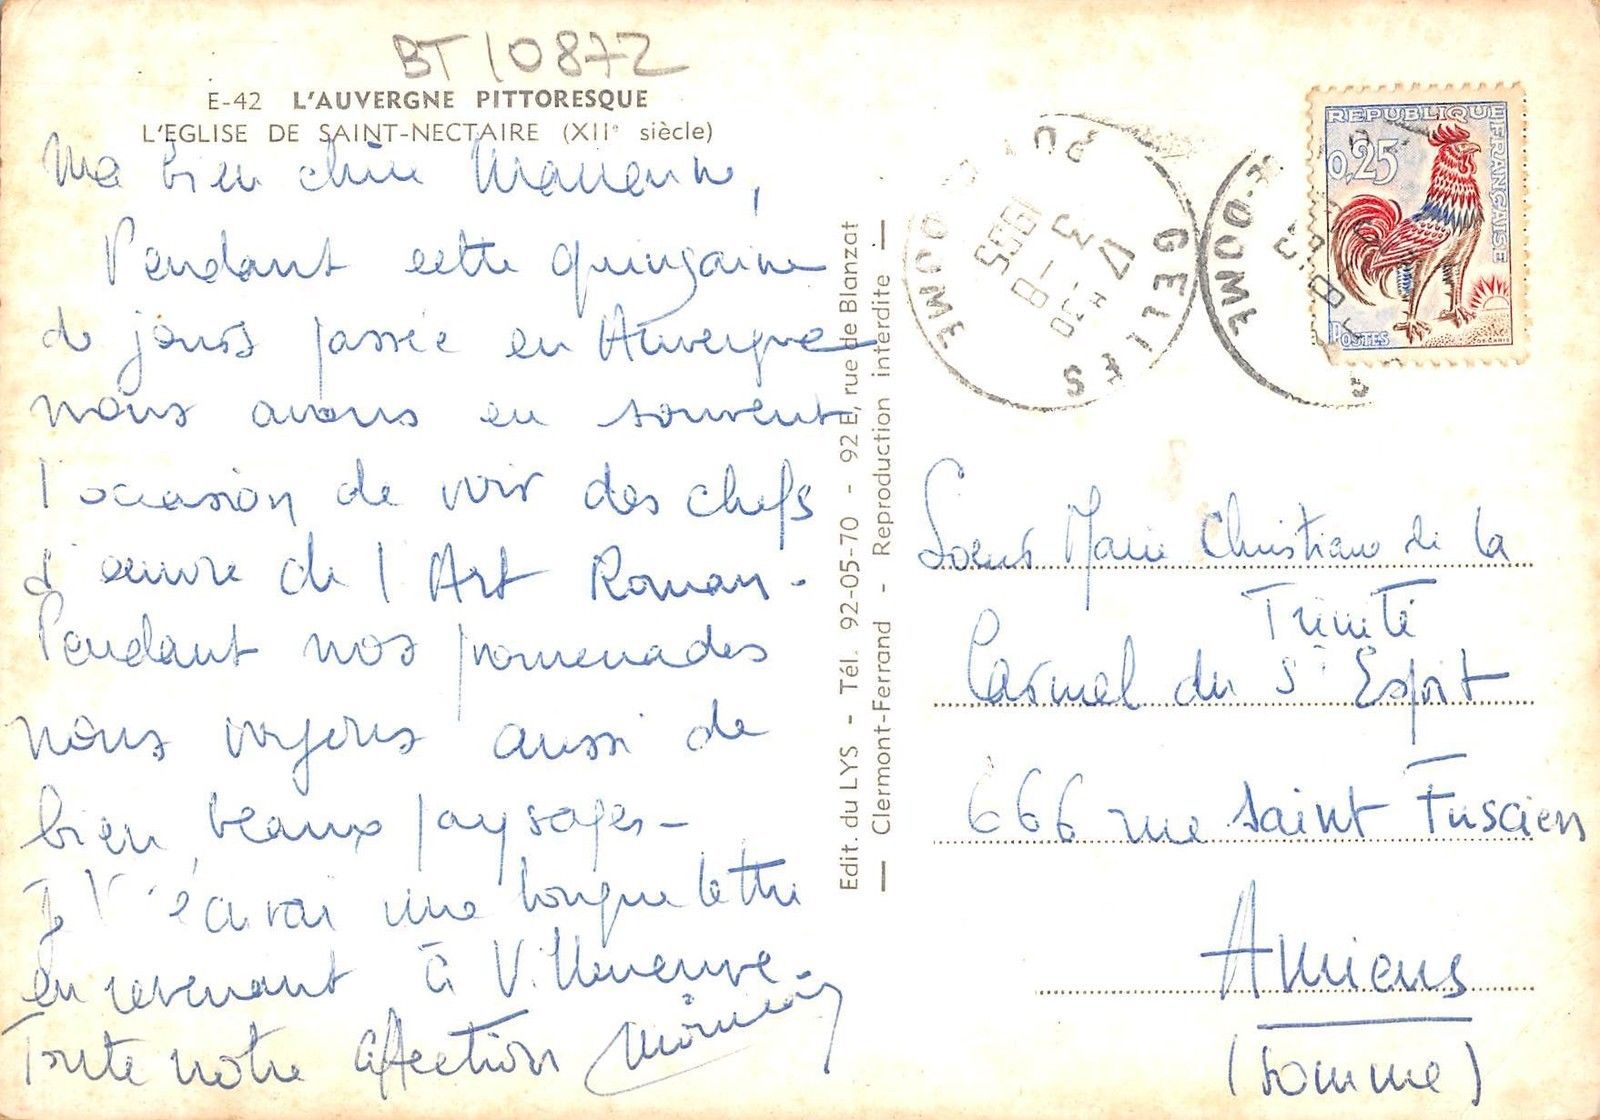 BT 10872
E-42 L'AUVERGNE PITTORESQUE
L'EGLISE DE SAINT-NECTAIRE (XIIe siècle)
Ma bien chère
Pendant cette quinzaine
de jours passée en Auvergne
nous avons eu souvent
l'occasion de voir des chefs
d'œuvre de l'Art Roman -
Pendant nos promenades
nous voyons aussi de
bien beaux paysages -
Je t'écrirai une longue lettre
en revenant à Villeneuve -
Toute notre affection
Edit. du LYS - Tél. 92-05-70 - 92 E, rue de Blanzat
— Clermont-Ferrand - Reproduction interdite —
GELLES
PUY-DE-DOME
17 H 30
3 - 8
1965
REPUBLIQUE FRANÇAISE
0,25
POSTES
DECARIS
Soeur Marie Christiane de la
Trinité
Carmel du St Esprit
666 rue Saint Fuscien
Amiens
(Somme)